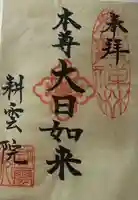 奉拝
本尊大日如来
耕雲院